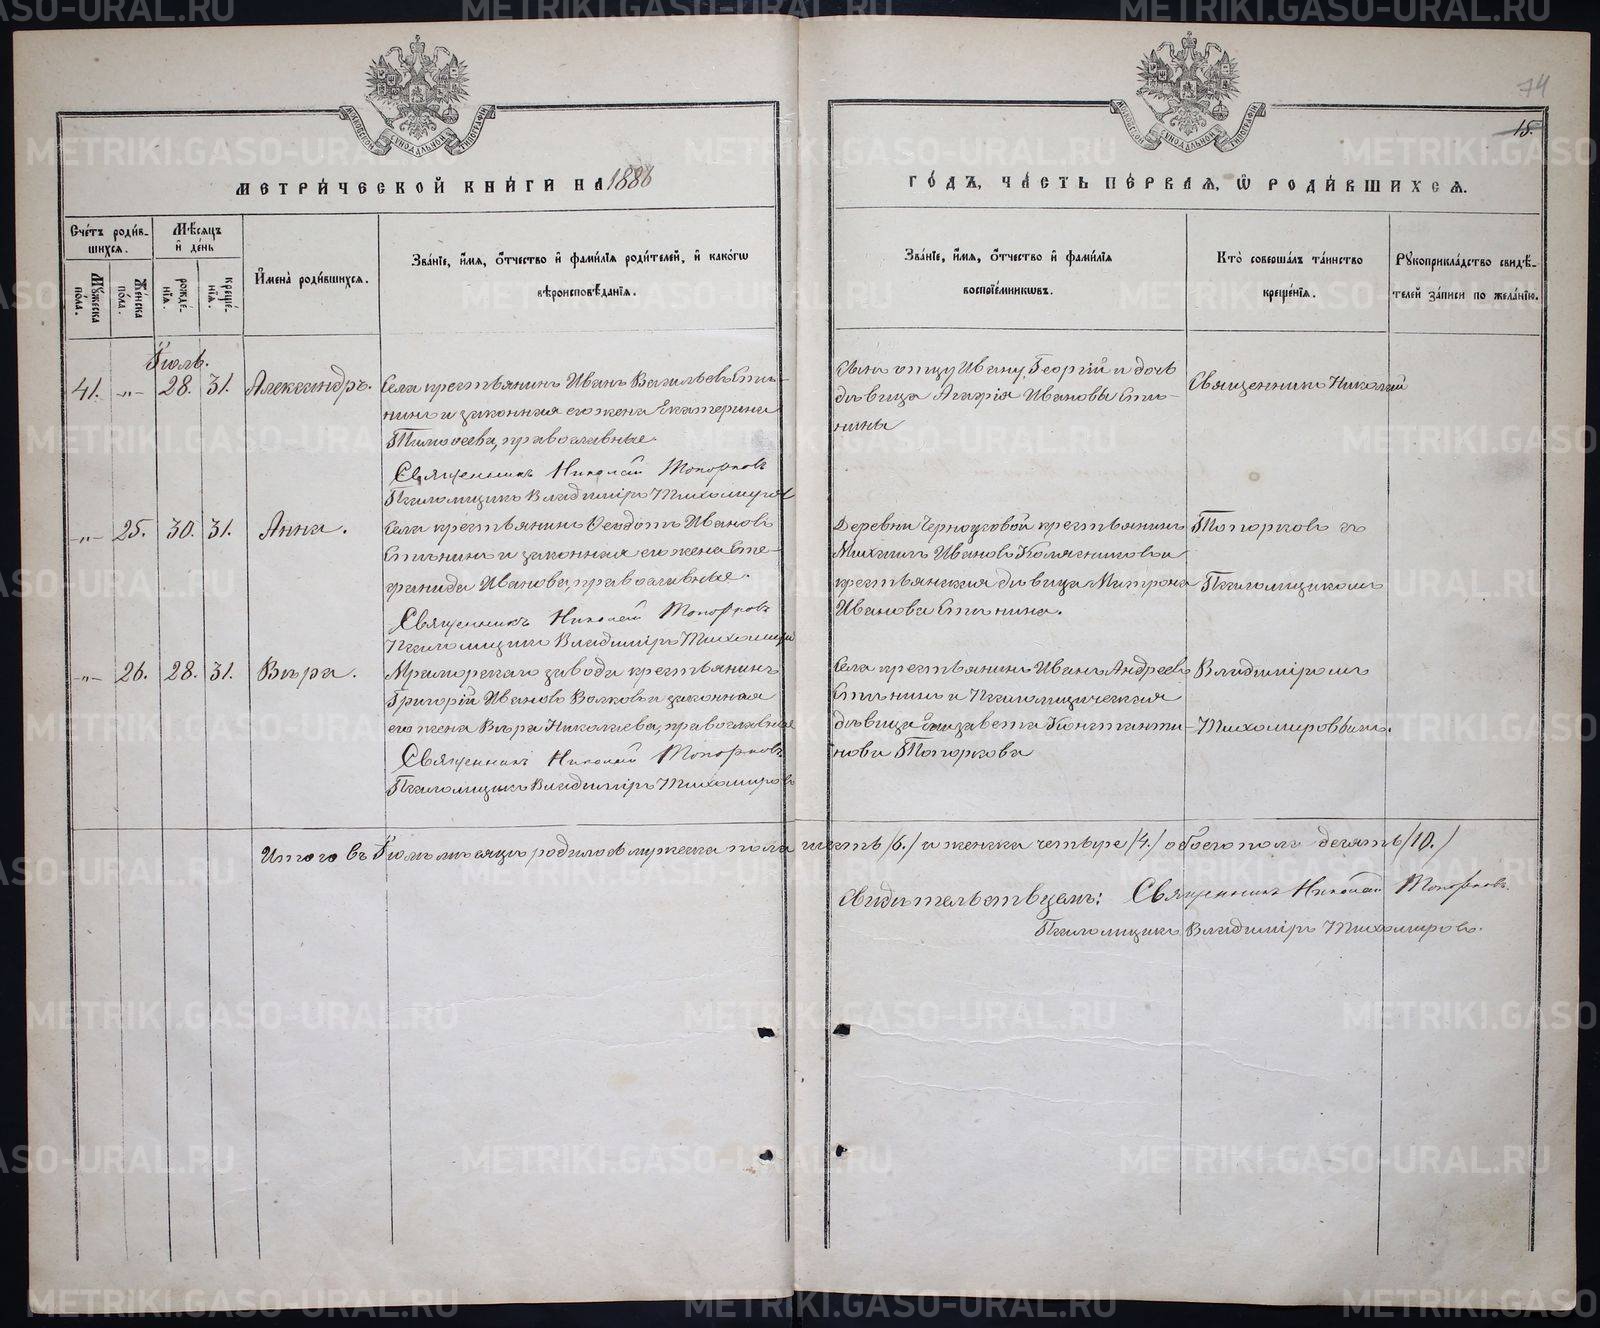 74
15.
МЕТРИЧЕСКОЙ КНИГИ НА 1886
ГОДЪ, ЧАСТЬ ПЕРВАЯ, Ѡ РОДИВШИХСЯ.
Счетъ родившихся.
Мужеска пола.
Женска пола.
Мѣсяцъ и день
рожденія.
крещенія.
Имена родившихся.
Званіе, имя, отчество и фамилія родителей, и какогѡ
вѣроисповѣданія.
Званіе, имя, отчество и фамилія
воспріемникѡвъ.
Кто совершалъ таинство
крещенія.
Рукоприкладство свидѣ-
телей записи по желанію.
Іюль.
41. -"- 28. 31. Александръ.
Села крестьянинъ Иванъ Васильевъ Стѣ-
нинъ и законная его жена Екатерина
Тимоѳеева, православные.
Священникъ Николай Топорковъ
Псаломщикъ Владиміръ Тихомировъ
Сынъ отцу Ивану, Георгій и дочь
дѣвица Агафія Ивановы Стѣ-
нины
Священникъ Николай
-"- 25. 30. 31. Анна.
Села крестьянинъ Ѳеодотъ Ивановъ
Стѣнинъ и законная его жена Сте-
фанида Иванова, православные.
Священникъ Николай Топорковъ
Псаломщикъ Владиміръ Тихомировъ
Деревни крестьянинъ
Михаилъ Ивановъ и
крестьянская дѣвица Матрона
Иванова Стѣнина.
Топорковъ съ
Псаломщикомъ
-"- 26. 28. 31. Вѣра.
Мраморскаго завода крестьянинъ
Григорій Ивановъ Волковъ и законная
его жена Вѣра Николаева, православные
Священникъ Николай Топорковъ
Псаломщикъ Владиміръ Тихомировъ
Села крестьянинъ Иванъ Андреевъ
Стѣнинъ и Псаломщическая
дѣвица Елизавета Константи-
нова Топоркова
Владиміромъ
Тихомировымъ.
Итого въ Іюлѣ мѣсяцѣ родилось мужеска пола шесть /6./ и женска четыре /4./ обоего пола десять /10./
Свидѣтельствуемъ: Священникъ Николай Топорковъ.
Псаломщикъ Владиміръ Тихомировъ.